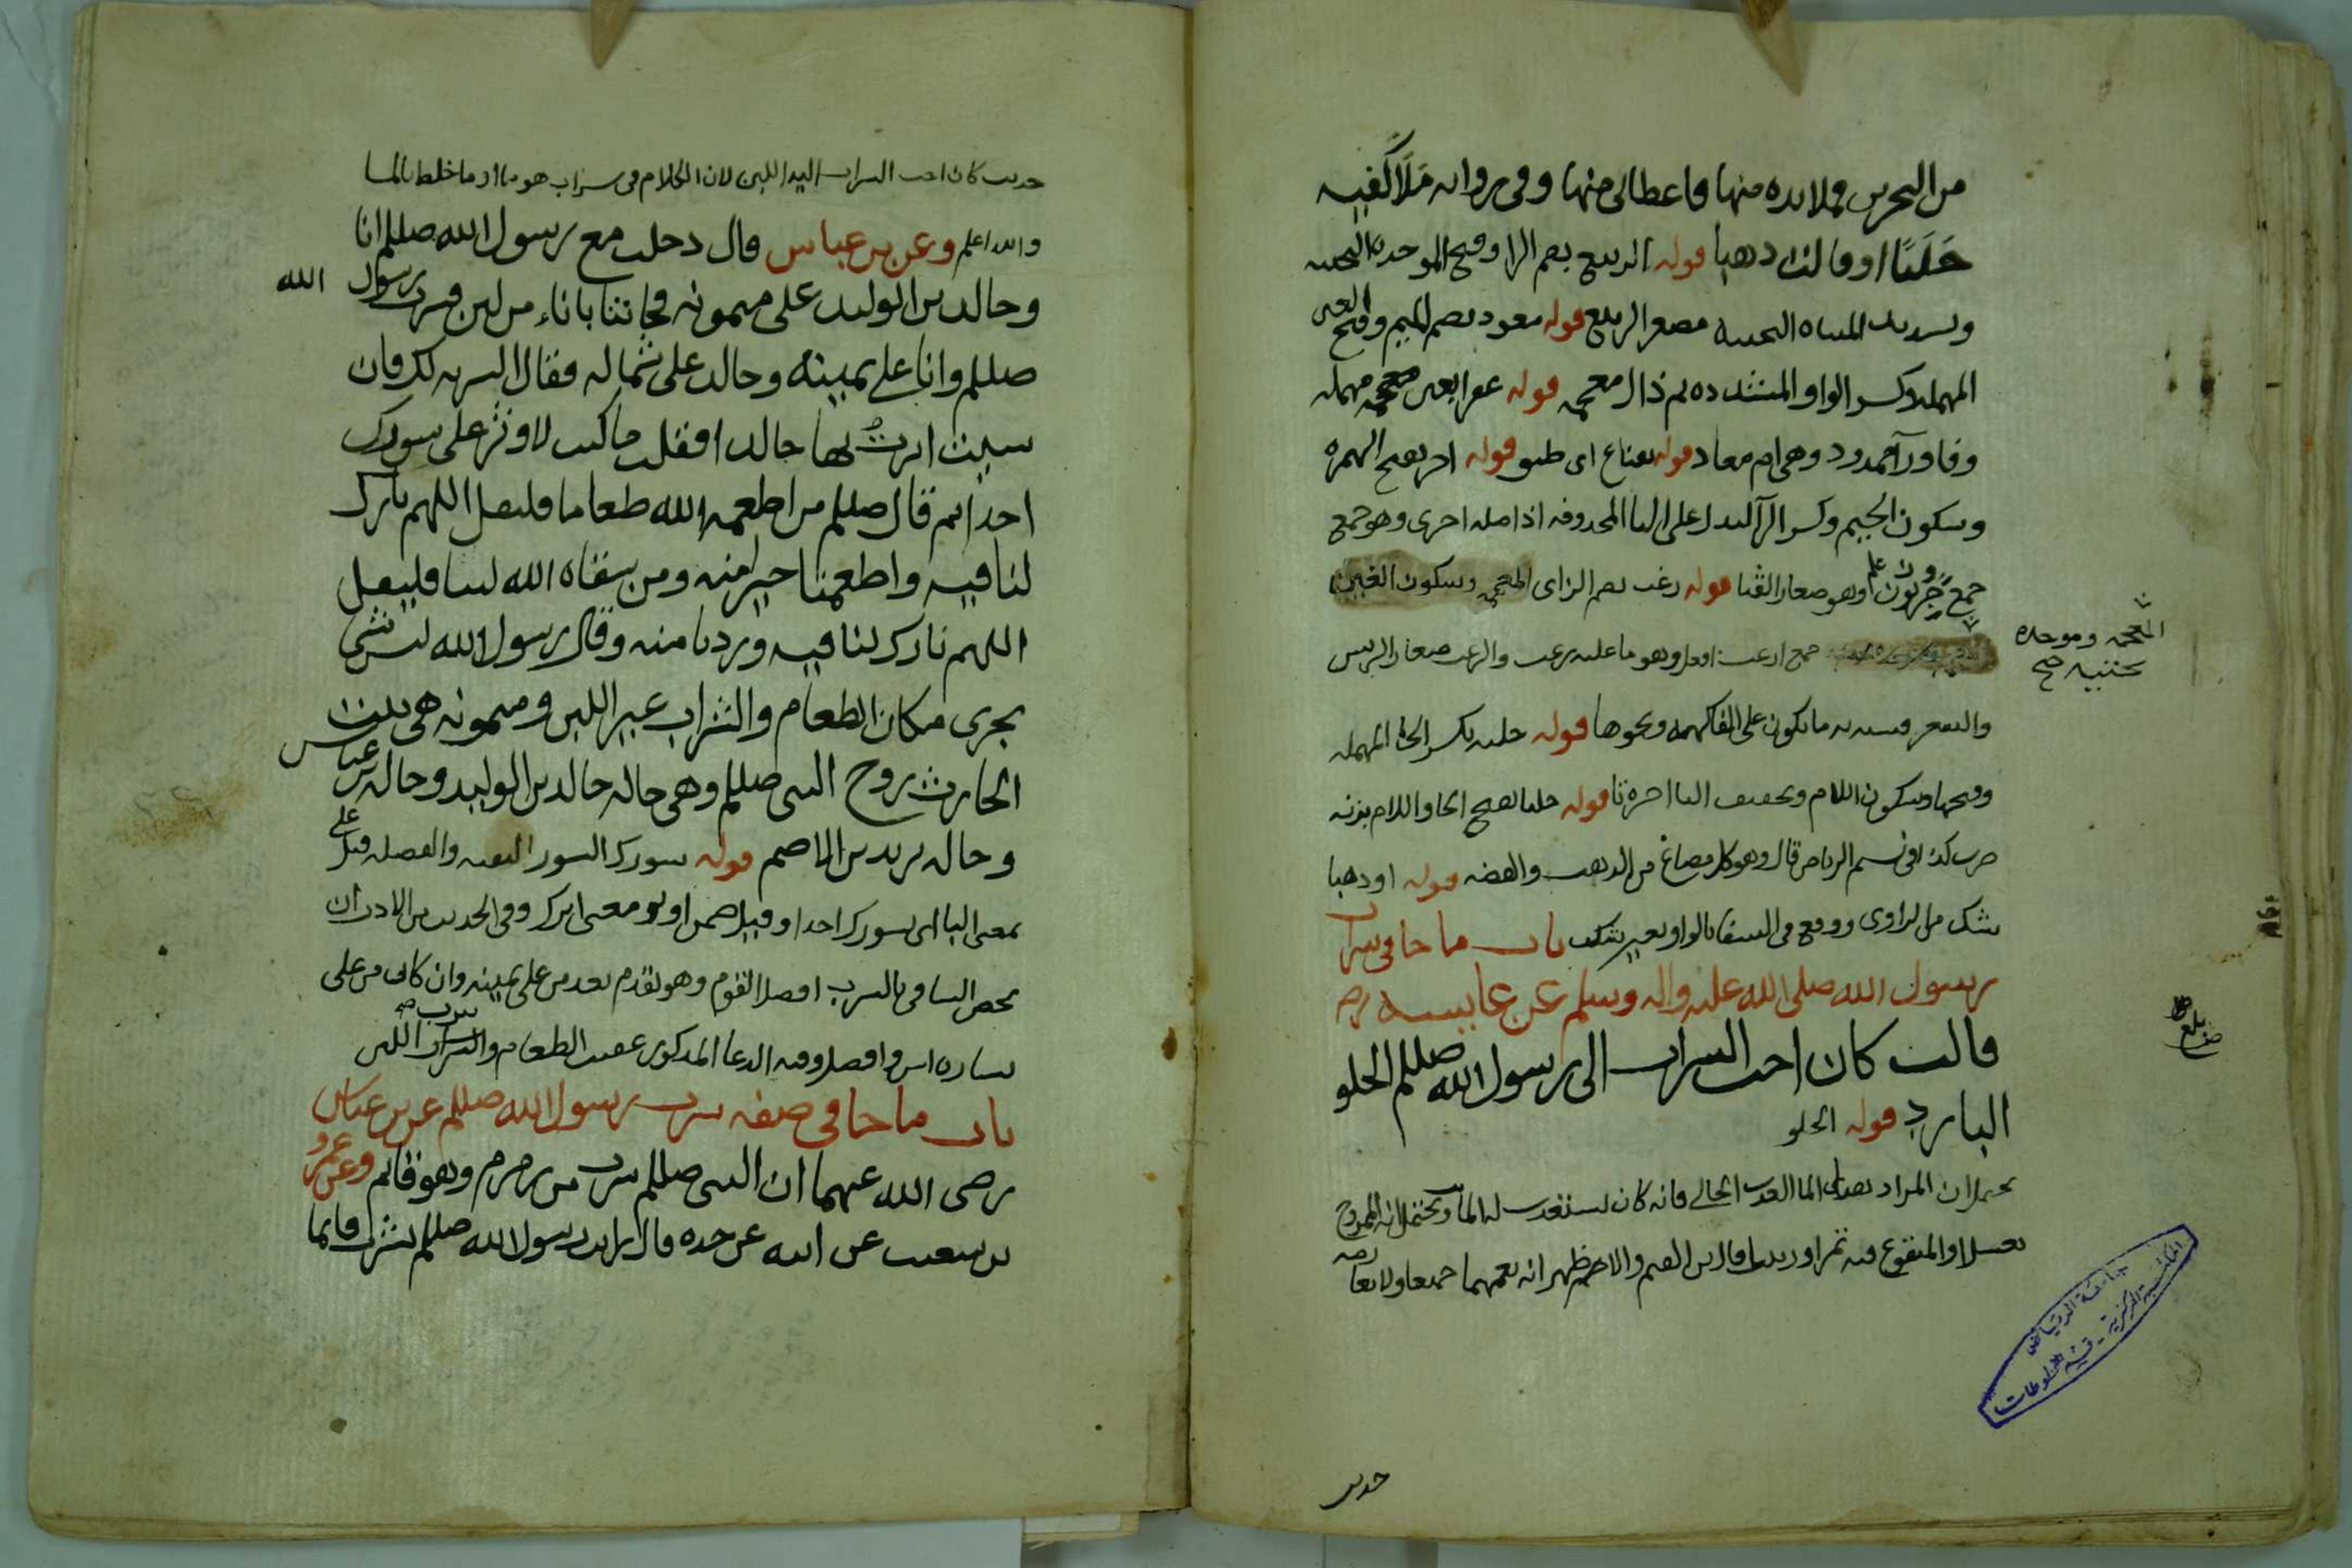 من البحرين فملا يده منها فاعطاني منها وفي رواية مَلَأ كَفَّيه
حَليًا او قالت ذهبا قوله الربيع بضم الرا وفتح الموحده التحتيه
وتسديد المثناه التحتية مصغر الربيع قوله معوذ بضم الميم وفتح العين
المهمله وكسر الواو المشدده ثم ذال معجمه قوله عفرا بعين مهمله
وفا ورآ ممدود وهي ام معاذ قوله بقناع اي طبق قوله اجر بفتح الهمزه
وسكون الجيم وكسر الرآ لتدل على اليا المحذوفه اذ اصله اجرى وهو جمع
جمع جرو وهو صغار القثا قوله زغب بضم الزاي المعجمه وسكون الغين
المعجمه وموحده
تحتيه صح
جمع ازغب افعل وهو ما عليه زغب والزغب صغار الريش
والشعر وشبه به ما يكون على الفاكهه ونحوها قوله حليه بكسر الحا المهمله
وفتحها وسكون اللام وتخفيف اليا اخره تا قوله حليا بفتح الحا واللام بزنه
ضرب كذا في نسيم الرياض قال وهو كل مصاغ من الذهب والفضه قوله او ذهبا
شك من الراوي ووقع في الشفا بالواو بغير شك باب ما جا في شراب
رسول الله صلى الله عليه واله وسلم عن عايشه رض
قالت كان احب الشراب الى رسول الله صللم الحلو
البارد قوله الحلو
يحتمل ان المراد بهذا الما العذب الحالي فانه كان يستعذب له الما ويحتمل انه الممزوج
بعسل او المنقوع فيه تمر او زبيب قال بن القيم والاظهر انه يعمهما جميعا ولا يعارضه
بلغ
حديث
جامعة الرياض
المكتبة المركزية - قسم المخطوطات
حديث كان احب الشراب اليه اللبن لان الكلام في شراب هو ما او ما خلط بالما
والله اعلم وعن بن عباس قال دخلت مع رسول الله صللم انا
وخالد بن الوليد على ميمونه فجاتنا باناء من لبن فشرب رسول الله
صللم وانا على يمينه وخالد على شماله فقال الشربه لك فان
شيت اثرت بها خالدا فقلت ما كنت لاوثر على سورك
احدا ثم قال صللم من اطعمه الله طعاما فليقل اللهم بارك
لنا فيه واطعمنا خيرا منه ومن سقاه الله لبنا فليقل
اللهم بارك لنا فيه وزدنا منه وقال رسول الله ليس شي
يجزي مكان الطعام والشراب غير اللبن وميمونه هي بنت
الحارث زوج النبي صللم وهي خاله خالد بن الوليد وخاله بن عباس
وخاله يزيد بن الاصم قوله سورك السور البقيه والفضله قيل على
بمعنى البا اي بسورك احدا وقيل ضمن اوثر معنى اترك وفي الحديث من الاداب ان
يخص الساقي بالشرب افضل القوم وهو يقدم بعد من على يمينه وان كان من على
يساره اسن وافضل وفيه الدعا المذكور عقيب الطعام وشرب اللبن
باب ما جا في صفه شرب رسول الله صللم عن بن عباس
رضي الله عنهما ان النبي صللم شرب من زمزم وهو قائم وعن عمرو
بن شعيب عن ابيه عن جده قال رايت رسول الله صللم يشرب قائما